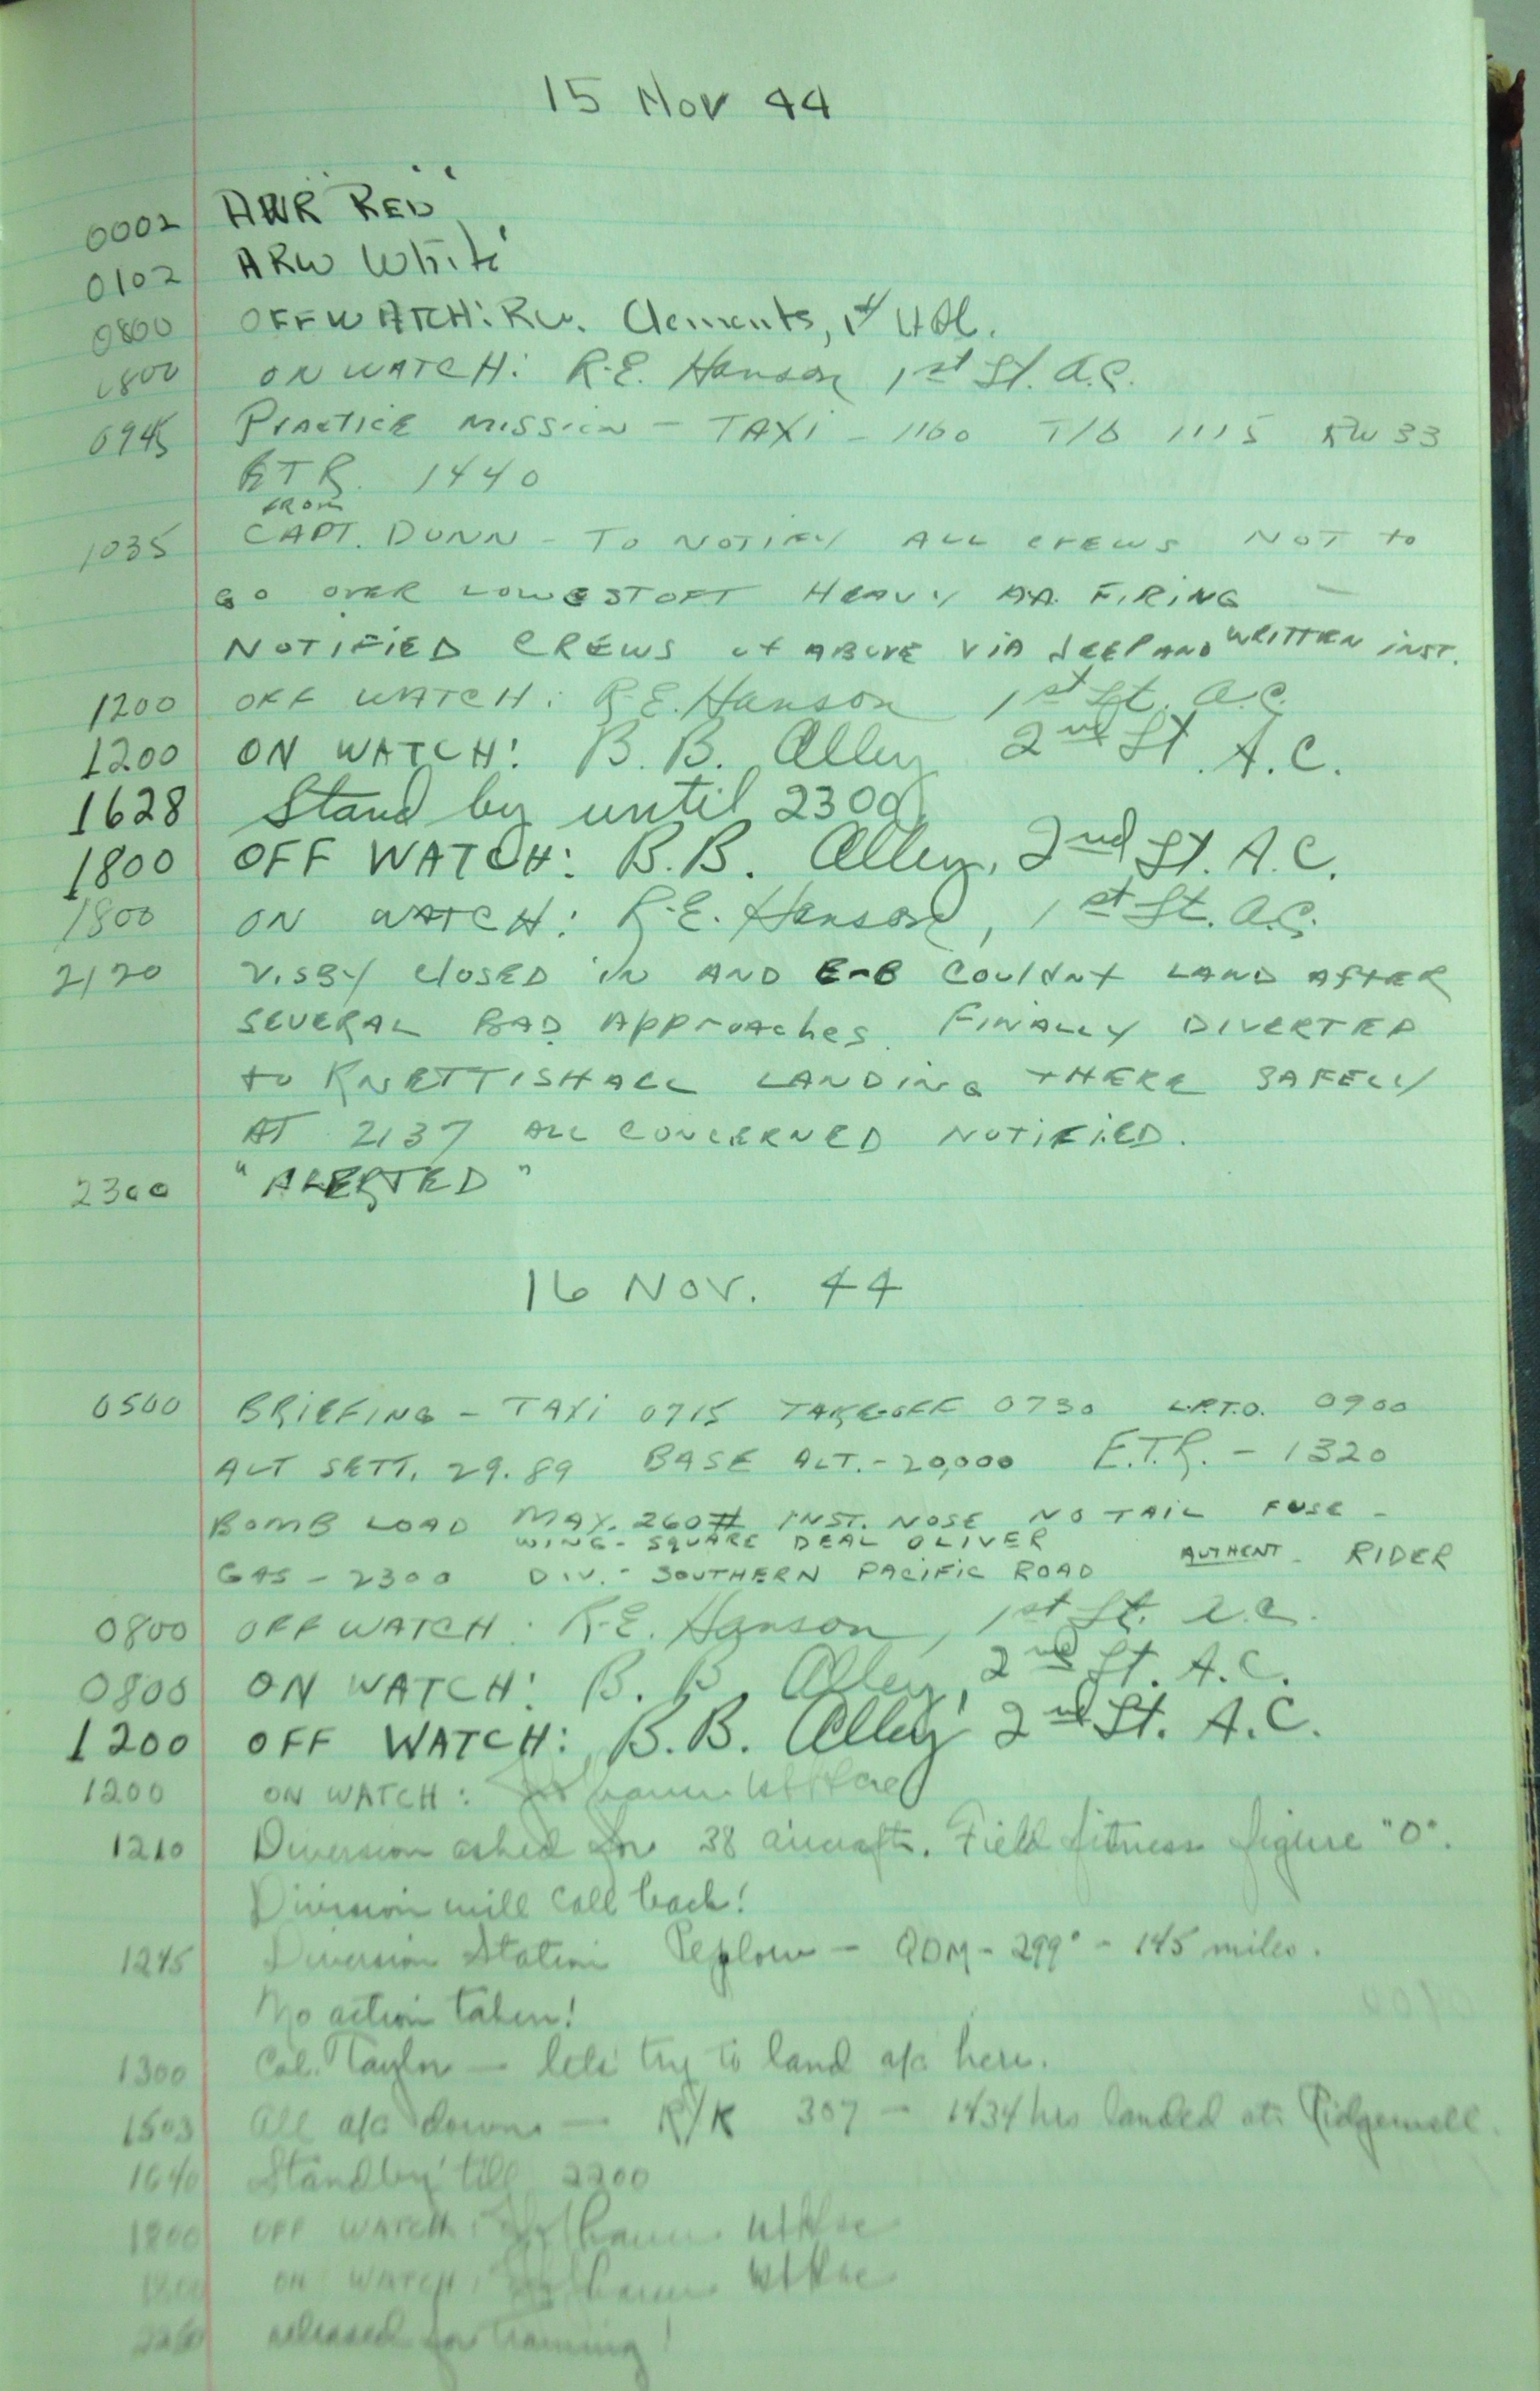 15 Nov 44
0002 ARW "RED"
0102 ARW White
0800 OFF WATCH: R.W. Clements, 1st
0800 ON WATCH: R.E. Hanson 1st Lt. A.C.
0945 Practice mission - TAXI - 1100 T/O 1115 RW 33
ETR. 1440
FROM
1035 CAPT. DUNN - TO NOTIFY ALL CREWS NOT to
GO OVER LOWESTOFT HEAVY AA FIRING -
NOTIFIED CREWS of ABOVE VIA JEEP AND WRITTEN INST.
1200 OFF WATCH: R.E. Hanson 1st Lt. A.C.
1200 ON WATCH: B.B. Alley 2nd Lt. A.C.
1628 Stand by until 2300
1800 OFF WATCH: B.B. Alley, 2nd Lt. A.C.
1800 ON WATCH: R.E. Hanson, 1st Lt. A.C.
2120 VISBY CLOSED IN AND E-B Couldnt LAND After
SEVERAL BAD Approaches. FINALLY DIVERTED
to KNETTISHALL LANDING THERE SAFELY
AT 2137 ALL CONCERNED NOTIFIED.
2300 "ALERTED"
16 NOV. 44
0500 BRIEFING - TAXI 0715 TAKE-OFF 0730 L.P.T.O. 0900
ALT SETT. 29.89 BASE ALT. - 20,000 E.T.R. - 1320
BOMB LOAD MAX. 260# INST. NOSE NO TAIL FUSE -
WING - SQUARE DEAL OLIVER
GAS - 2300 DIV. - SOUTHERN PACIFIC ROAD AUTHENT - RIDER
0800 OFF WATCH: R.E. Hanson, 1st Lt. A.C.
0800 ON WATCH: B.B. Alley, 2nd Lt. A.C.
1200 OFF WATCH: B.B. Alley 2nd Lt. A.C.
1200 ON WATCH:
1210 Diversion asked for 38 aircraft. Field fitness figure "0".
Division will call back!
1245 Diversion Station Peplow - QDM - 299° - 145 miles.
No action taken!
1300 Col. Taylor - lets try to land a/c here.
1503 All a/c down - R/K 307 - 1434 hrs landed at Ridgewell.
1640 Standby till 2200
1800 OFF WATCH:
ON WATCH:
released for training!